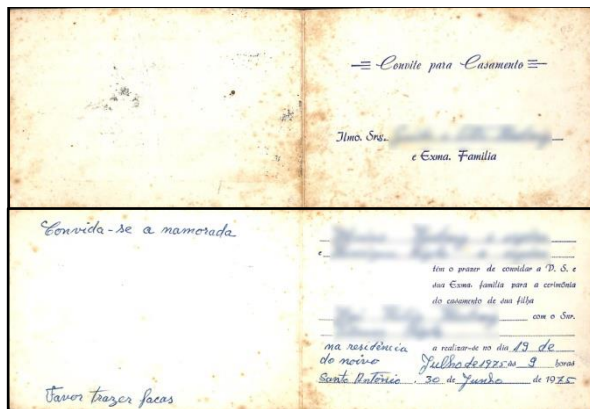 Convite para Casamento
Ilmo. Srs.
e Exma. Família
Convida-se a namorada
Favor trazer facas
e
têm o prazer de convidar a V. S. e
sua Exma. família para a cerimônia
do casamento de sua filha
com o Snr.
na residência do noivo
a realizar-se no dia 19 de
Julho de 1975 às 9 horas
Santo Antônio, 30 de Junho de 1975